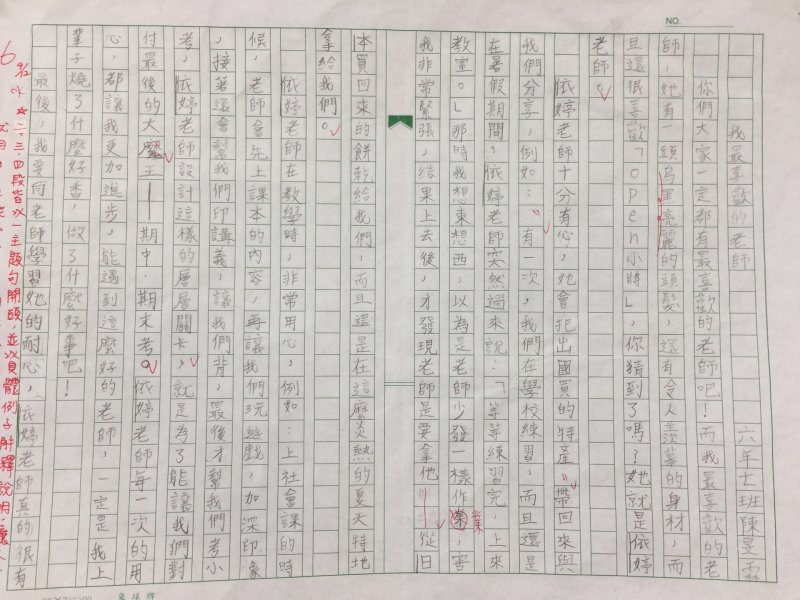 NO.
我最喜歡的老師
六年七班陳旻霖
你們大家一定都有最喜歡的老師吧！而我最喜歡的老
師，她有一頭烏黑亮麗的頭髮，還有令人羨慕的身材，而
且還很喜歡「open小將」，你猜到了嗎？她就是依婷
老師。
依婷老師十分有心，她會把出國買的特產，帶回來與
我們分享，例如：，有一次，我們在學校練習，而且還是
在暑假期間，依婷老師突然過來說：「等等練習完，上來
教室。」那時我想東想西，以為是老師少發一樣作業，害
我非常緊張，結果上去後，才發現老師是要拿他從日
本買回來的餅乾給我們，而且還是在這麼炎熱的夏天特地
拿給我們。
依婷老師在教學時，非常用心，例如：上社會課的時
候，老師會先上課本的內容，再讓我們玩遊戲，加深印象
，接著還會幫我們印講義，讓我們背，最後才幫我們考小
考，依婷老師設計這樣的層層關卡，就是為了能讓我們對
付最後的大魔王——期中、期末考。依婷老師每一次的用
心，都讓我更加進步，能遇到這麼好的老師，一定是我上
輩子燒了什麼好香，做了什麼好事吧！
最後，我要向老師學習她的耐心，依婷老師真的很有
6 9/12 ☆二、三、四段皆以一主題句開頭，並以具體例子解釋說明，讓